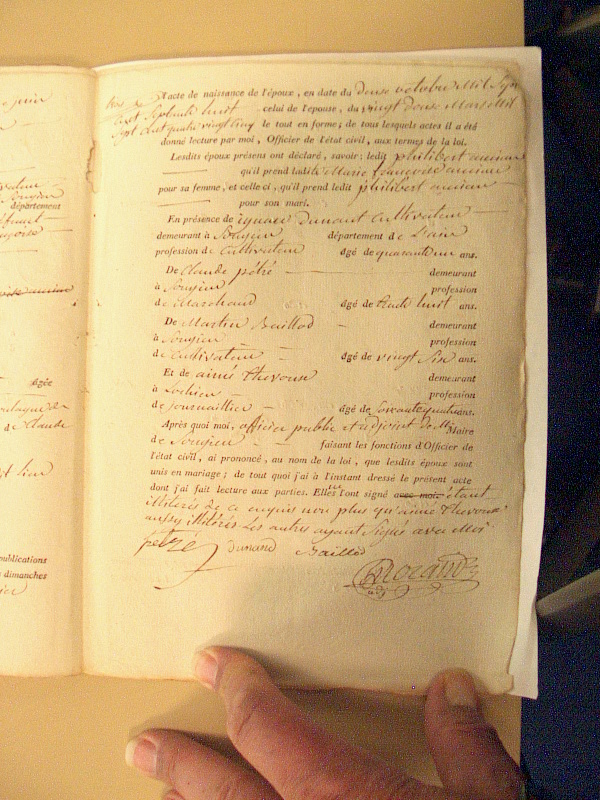 l'acte de naissance de l'époux, en date du douse octobre Mil Sept
Cent Septante huit celui de l'épouse, du vingt douse Mars Mil
Sept Cent quatre vingt Cinq le tout en forme; de tous lesquels actes il a été
donné lecture par moi, Officier de l'état civil, aux termes de la loi.
Lesdits époux présens ont déclaré, savoir; ledit philibert
qu'il prend ladite Marie françoise
pour sa femme, et celle ci, qu'il prend ledit philibert
pour son mari.
En présence de ignace Dunant Cultivateur
demeurant à Songieu département de L'ain
profession de Cultivateur âgé de quarante un ans.
De Claude pétré demeurant
à Songieu profession
de Marchand âgé de trente huit ans.
De Martin Baillod demeurant
à Songieu profession
de Cultivateur âgé de vingt Six ans.
Et de aimé thevoux demeurant
à Lochieu profession
de journaillier âgé de Soixante quatre ans.
Après quoi moi, officier public et adjoint de Mr Maire
de Songieu faisant les fonctions d'Officier de
l'état civil, ai prononcé, au nom de la loi, que lesdits époux sont
unis en mariage; de tout quoi j'ai à l'instant dressé le présent acte
dont j'ai fait lecture aux parties. Elles l'ont signé avec moi étant
illitérés de ce enquis non plus qu'aimé thevoux
aussy illitérés Les autres ayant Signés avec Moi
petré Dunand Baillod
adj
âgée
département
de Claude
publications
dimanches